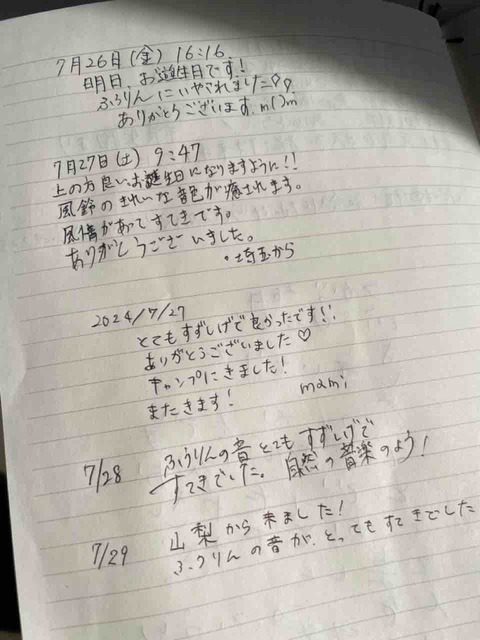 7月26日(金) 16:16
明日、お誕生日です!
ふうりんにいやされました♡♡
ありがとうございます。m()m
7月27日(土) 9:47
上の方良いお誕生日になりますように!!
風鈴のきれいな音色が癒されます。
風情があってすてきです。
ありがとうございました。
・埼玉から
2024/7/27
とてもすずしげで良かったです!!
ありがとうございました♡
キャンプにきました!
またきます! mami
7/28 ふうりんの音とてもすずしげで
すてきでした。自然の音楽のよう!
7/29 山梨から来ました!
ふうりんの音が、とってもすてきでした